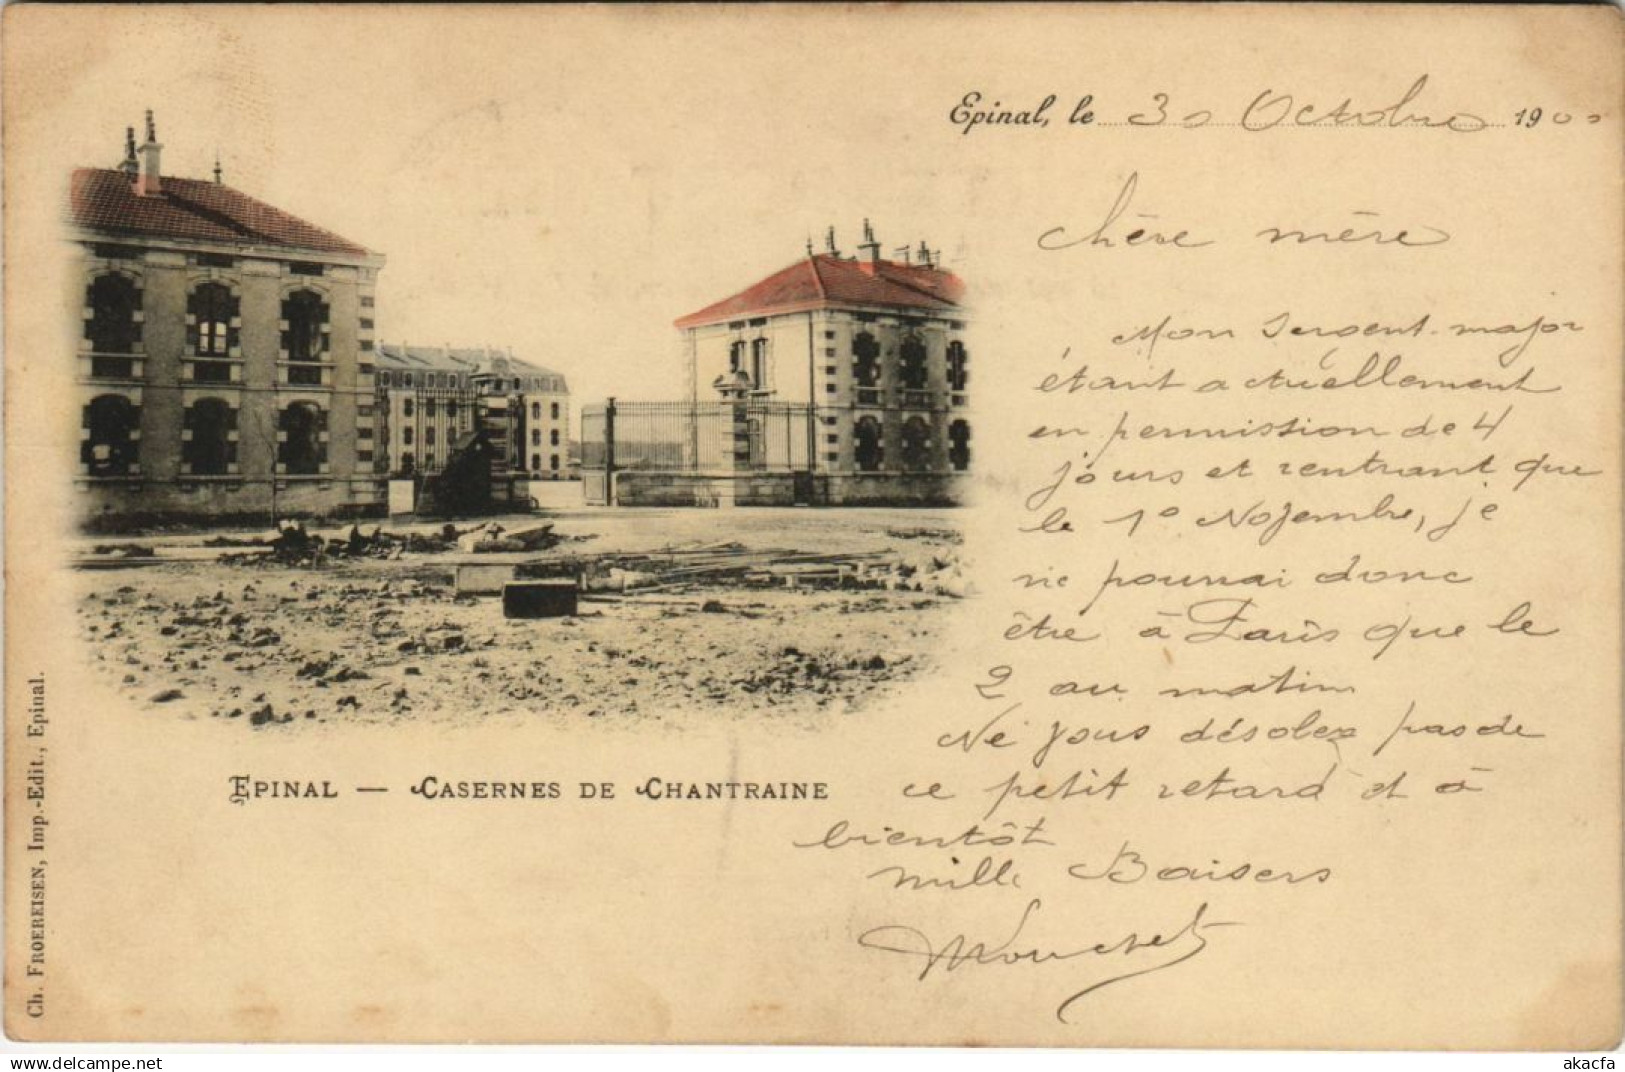 Epinal, le 30 Octobre 1900
Chère mère
Mon Sergent-major
étant actuellement
en permission de 4
jours et rentrant que
le 1º Novembre, je
ne pourrai donc
être à Paris que le
2 au matin
Ne vous désolez pas de
ce petit retard et à
bientôt
mille Baisers
Mouchet
EPINAL — CASERNES DE CHANTRAINE
Ch. FROEREISEN, Imp.-Edit., Epinal.
akacfa